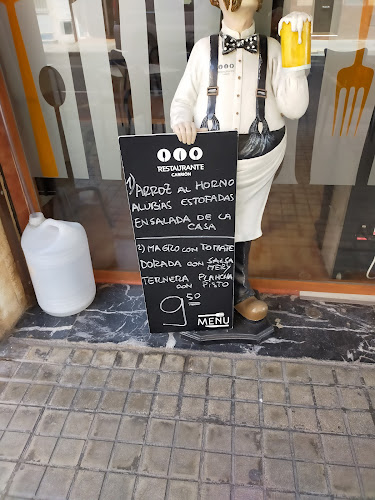 RESTAURANTE
CARRIÓN
1) ARROZ AL HORNO
ALUBIAS ESTOFADAS
ENSALADA DE LA
CASA
2) MAGRO CON TOMATE
DORADA CON SALSA
MERY
TERNERA PLANCHA
CON PISTO
9 50
MENÚ